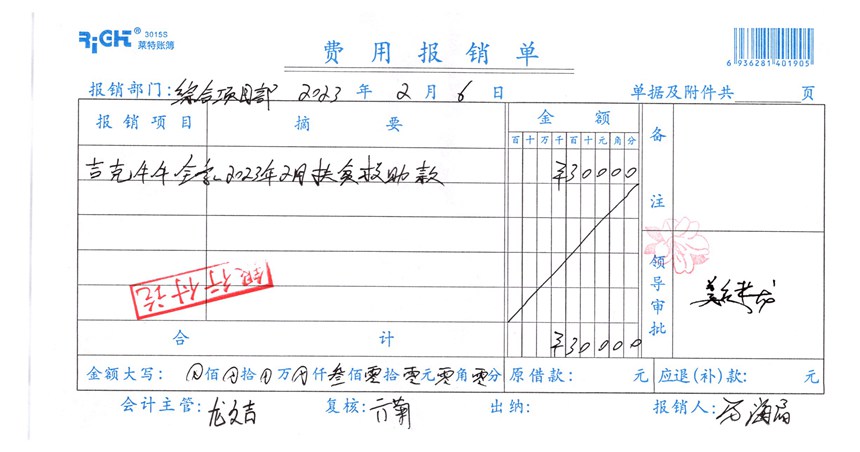 RiGHT® 3015S
莱特账簿
费用报销单
6 936281 401905
报销部门:综合项目部 2023年2月6日 单据及附件共 页
报销项目 摘要 金额 备注
百十万千百十元角分
吉克牛牛全家2023年2月扶贫救助款 ¥30000
银行付讫
领导审批
合计 ¥30000
金额大写: 佰 拾 万 仟叁佰零拾零元零角零分 原借款: 元 应退(补)款: 元
会计主管:龙文吉 复核: 出纳: 报销人: